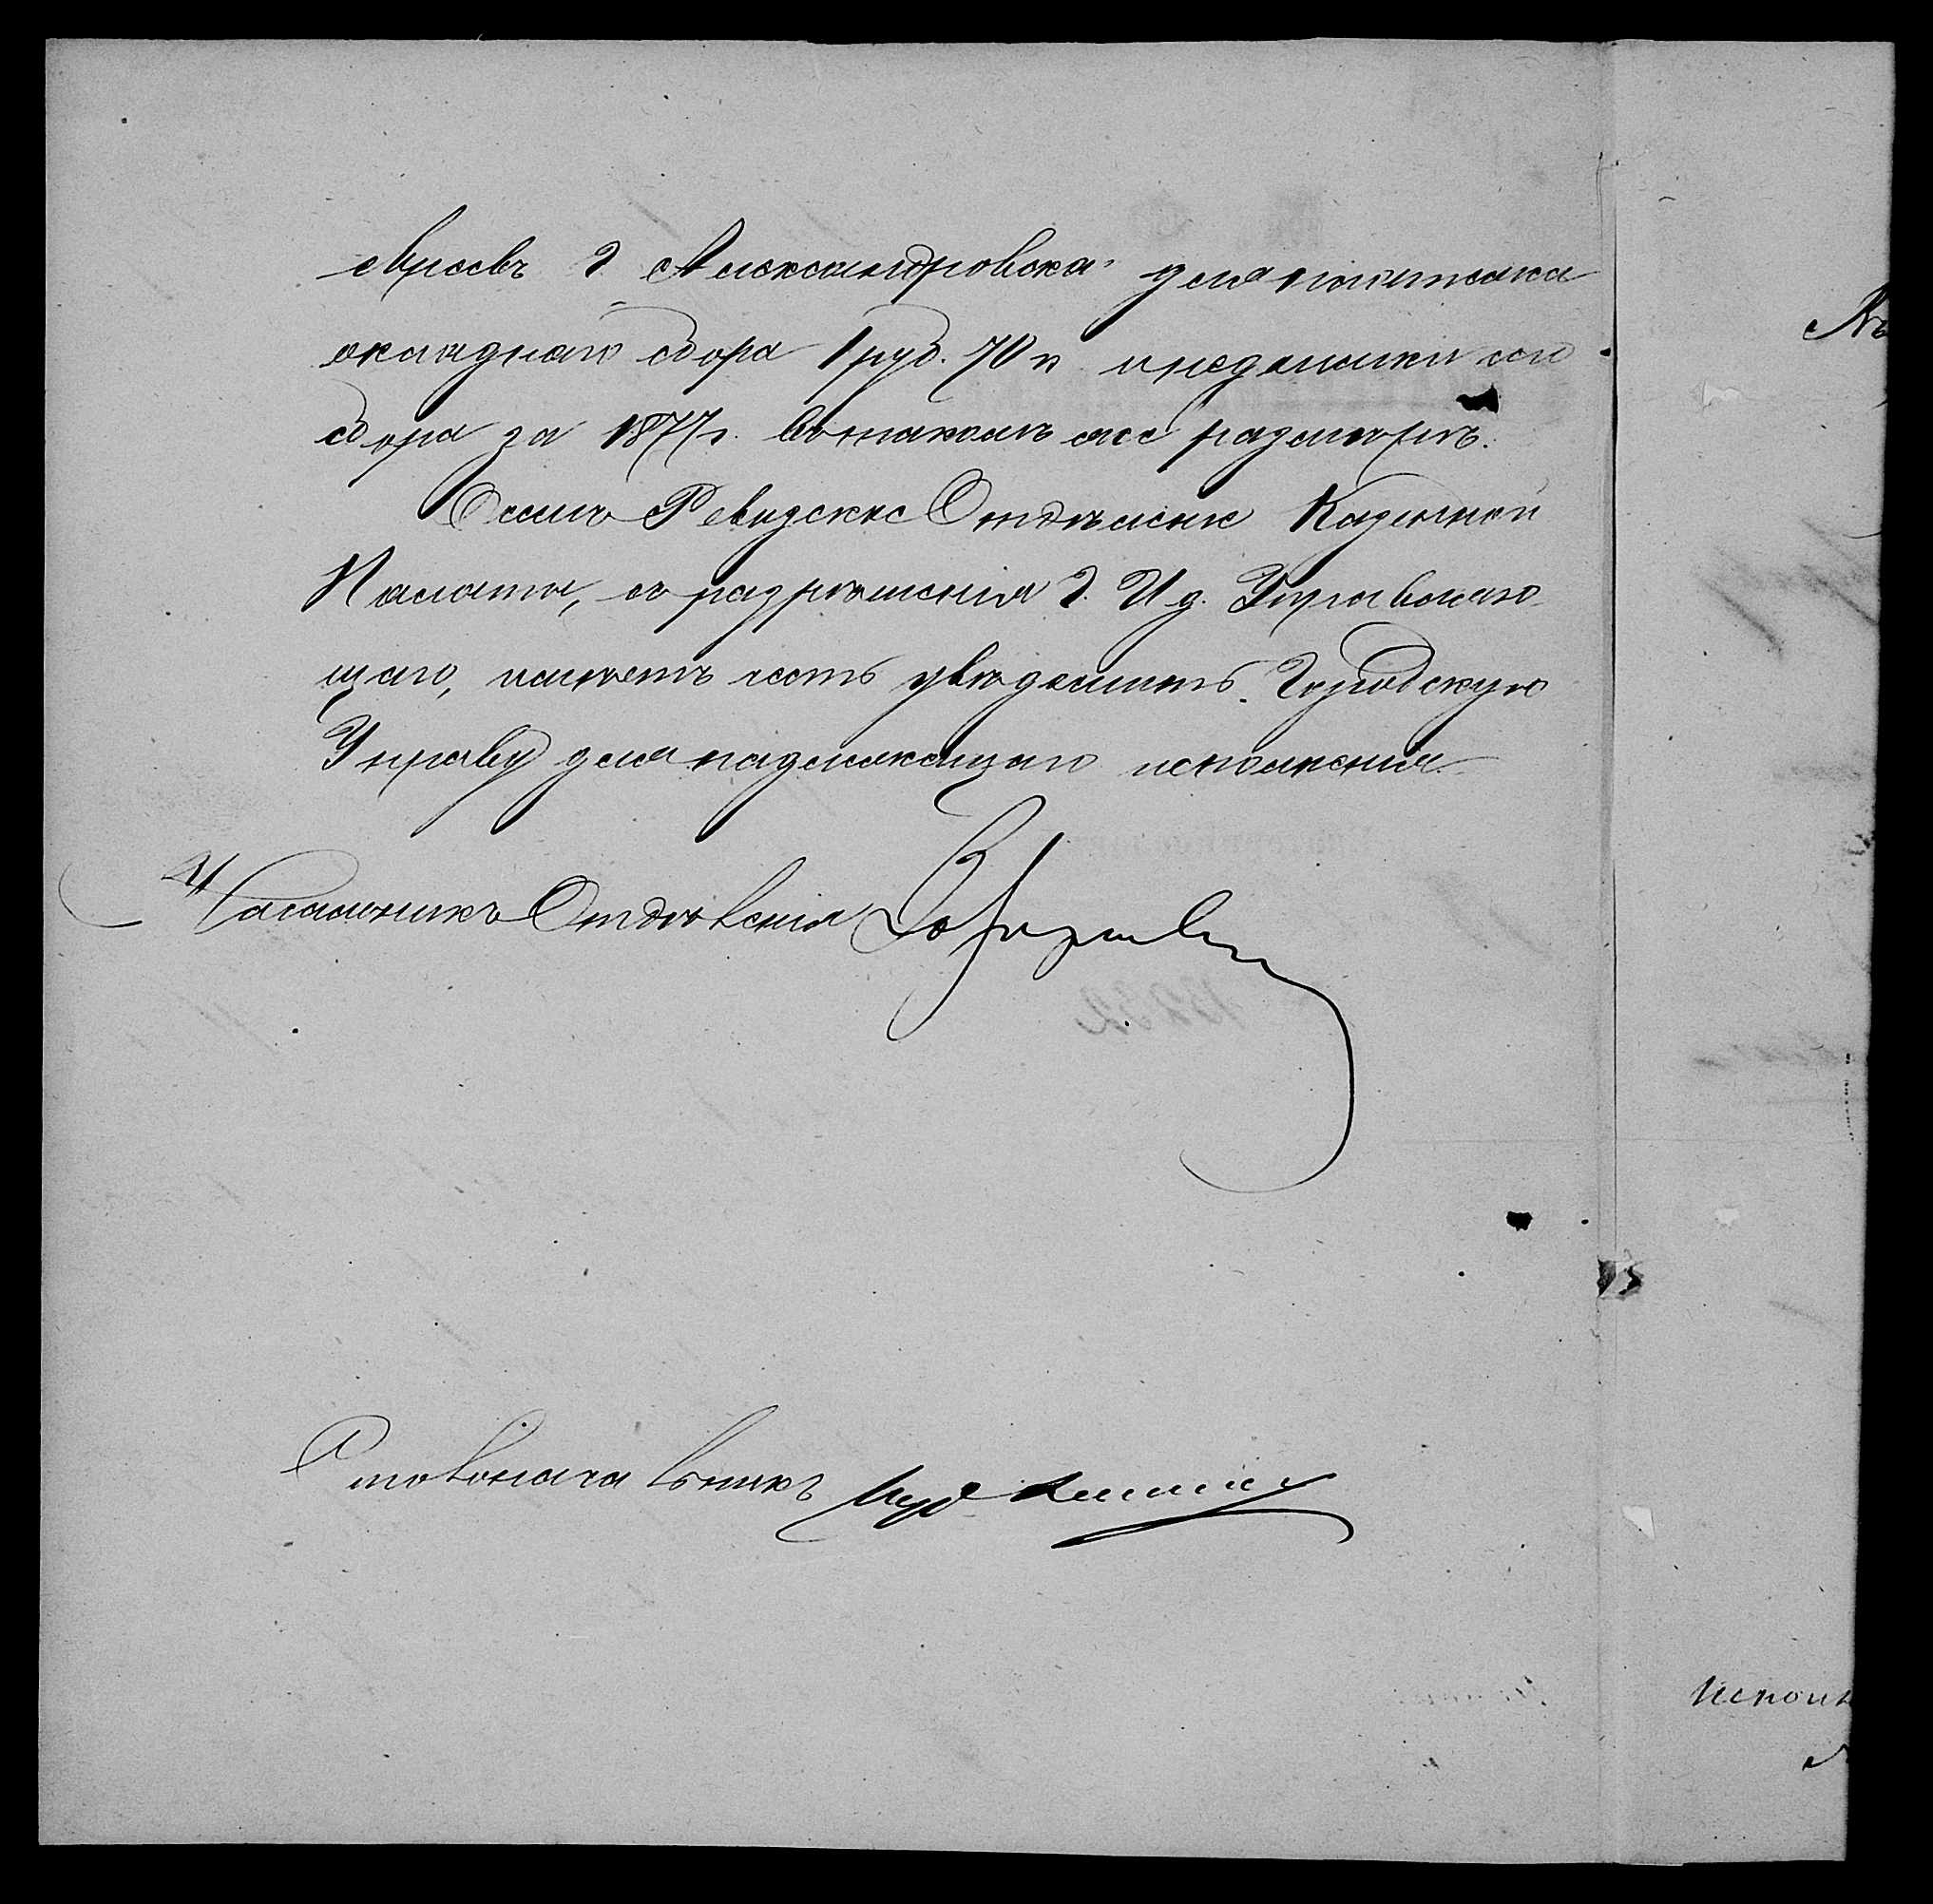 евреевъ г. Александровска для платежа
окладнаго сбора 1 руб. 70 к и недоимки сего
сбора за 1877 г. въ такомъ же размѣрѣ.
О семъ Ревизское Отдѣленіе Казенной
Палаты, съ разрѣшенія Г. И. д. Управляю-
щаго, имѣетъ честь увѣдомить Городскую
Управу для надлежащаго исполненія.
Начальникъ Отдѣленія
Столоначальникъ
№